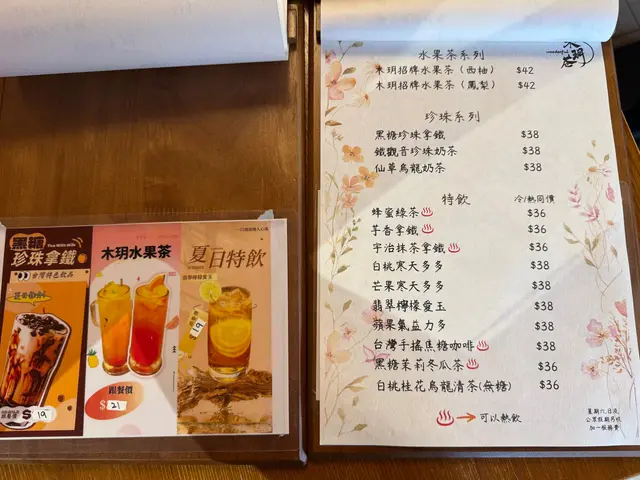 水果茶系列
木玥招牌水果茶(西柚) $42
木玥招牌水果茶(鳳梨) $42
珍珠系列
黑糖珍珠拿鐵 $38
鐵觀音珍珠奶茶 $38
仙草烏龍奶茶 $38
特飲 冷/熱同價
蜂蜜綠茶 $36
芋香拿鐵 $36
宇治抹茶拿鐵 $36
白桃寒天多多 $38
芒果寒天多多 $38
翡翠檸檬愛玉 $38
蘋果氣益力多 $38
台灣手搖焦糖咖啡 $38
黑糖茉莉冬瓜茶 $36
白桃桂花烏龍清茶(無糖) $36
可以熱飲
星期六,日及
公眾假期另收
加一服務費
黑糖
珍珠拿鐵
台灣特色飲品
$19
木玥水果茶
跟餐價
$21
夏日特飲
19